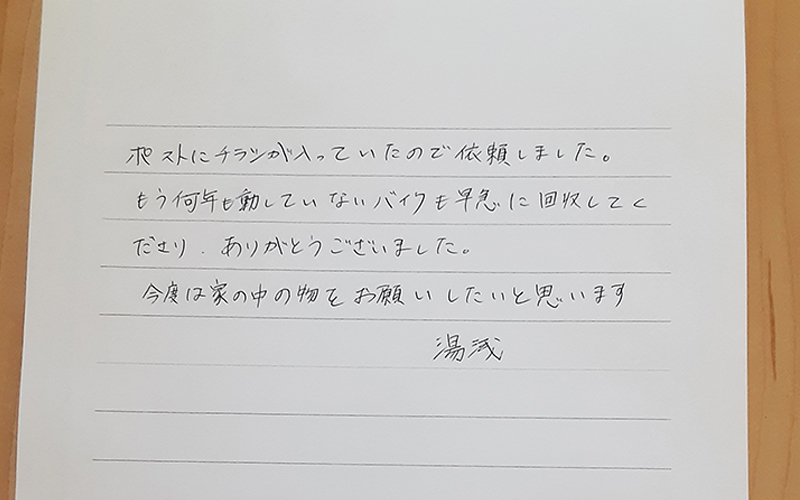 ポストにチラシが入っていたので依頼しました。
もう何年も動していないバイクも早急に回収してく
ださり、ありがとうございました。
今度は家の中の物をお願いしたいと思います
湯浅